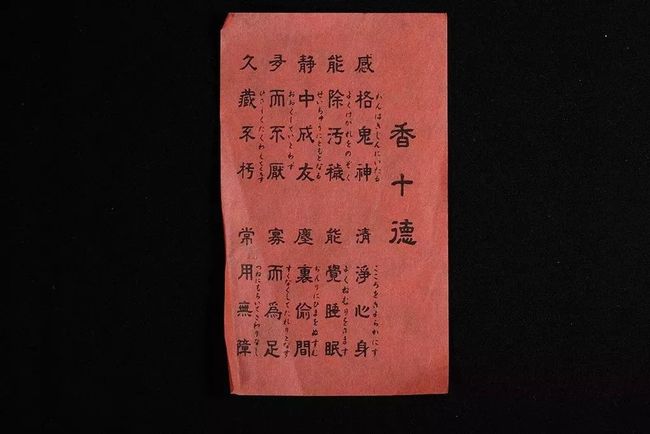 香十德
感格鬼神 清淨心身
かんはきしんにいたる こころをきよらかにす
能除汚穢 能覺睡眠
よくけがれをのぞく よくねむりをさます
静中成友 塵裏偷間
せいちゅうにともとなる ぢんりにひまをぬすむ
多而不厭 寡而爲足
おおくしていとわず すくなくしてたれりとなす
久藏不朽 常用無障
ひさしくたくわえてくちず つねにもちいてさわりなし